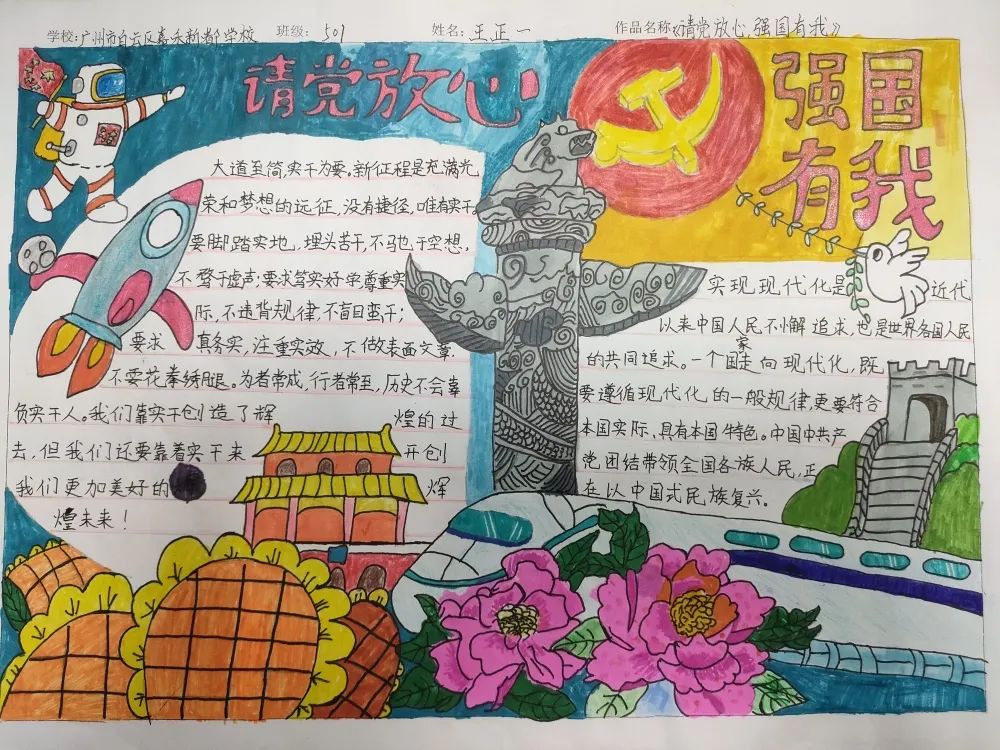 学校:广州市白云区嘉禾新都学校 班级: 501 姓名: 王正一 作品名称《请党放心,强国有我》
请党放心
强国
有我
大道至简,实干为要。新征程是充满光
荣和梦想的远征,没有捷径,唯有实干
要脚踏实地,埋头苦干,不驰于空想,
不骛于虚声;要求笃实好学,尊重实
际,不违背规律,不盲目蛮干;
要求 真务实,注重实效,不做表面文章,
不耍花拳绣腿。为者常成,行者常至,历史不会辜
负实干人。我们靠实干创造了辉 煌的过
去,但我们还要靠着实干来 开创
我们更加美好的 辉
煌未来!
实现现代化是 近代
以来中国人民不懈追求,也是世界各国人民
的共同追求。一个国家走向现代化,既
要遵循现代化的一般规律,更要符合
本国实际,具有本国特色。中国中共产
党团结带领全国各族人民,正
在以中国式民族复兴。